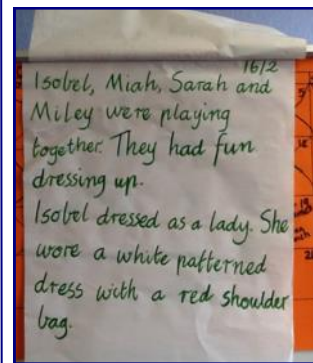 16/2
Isobel, Miah, Sarah and
Miley were playing
together. They had fun
dressing up.
Isobel dressed as a lady. She
wore a white patterned
dress with a red shoulder
bag.